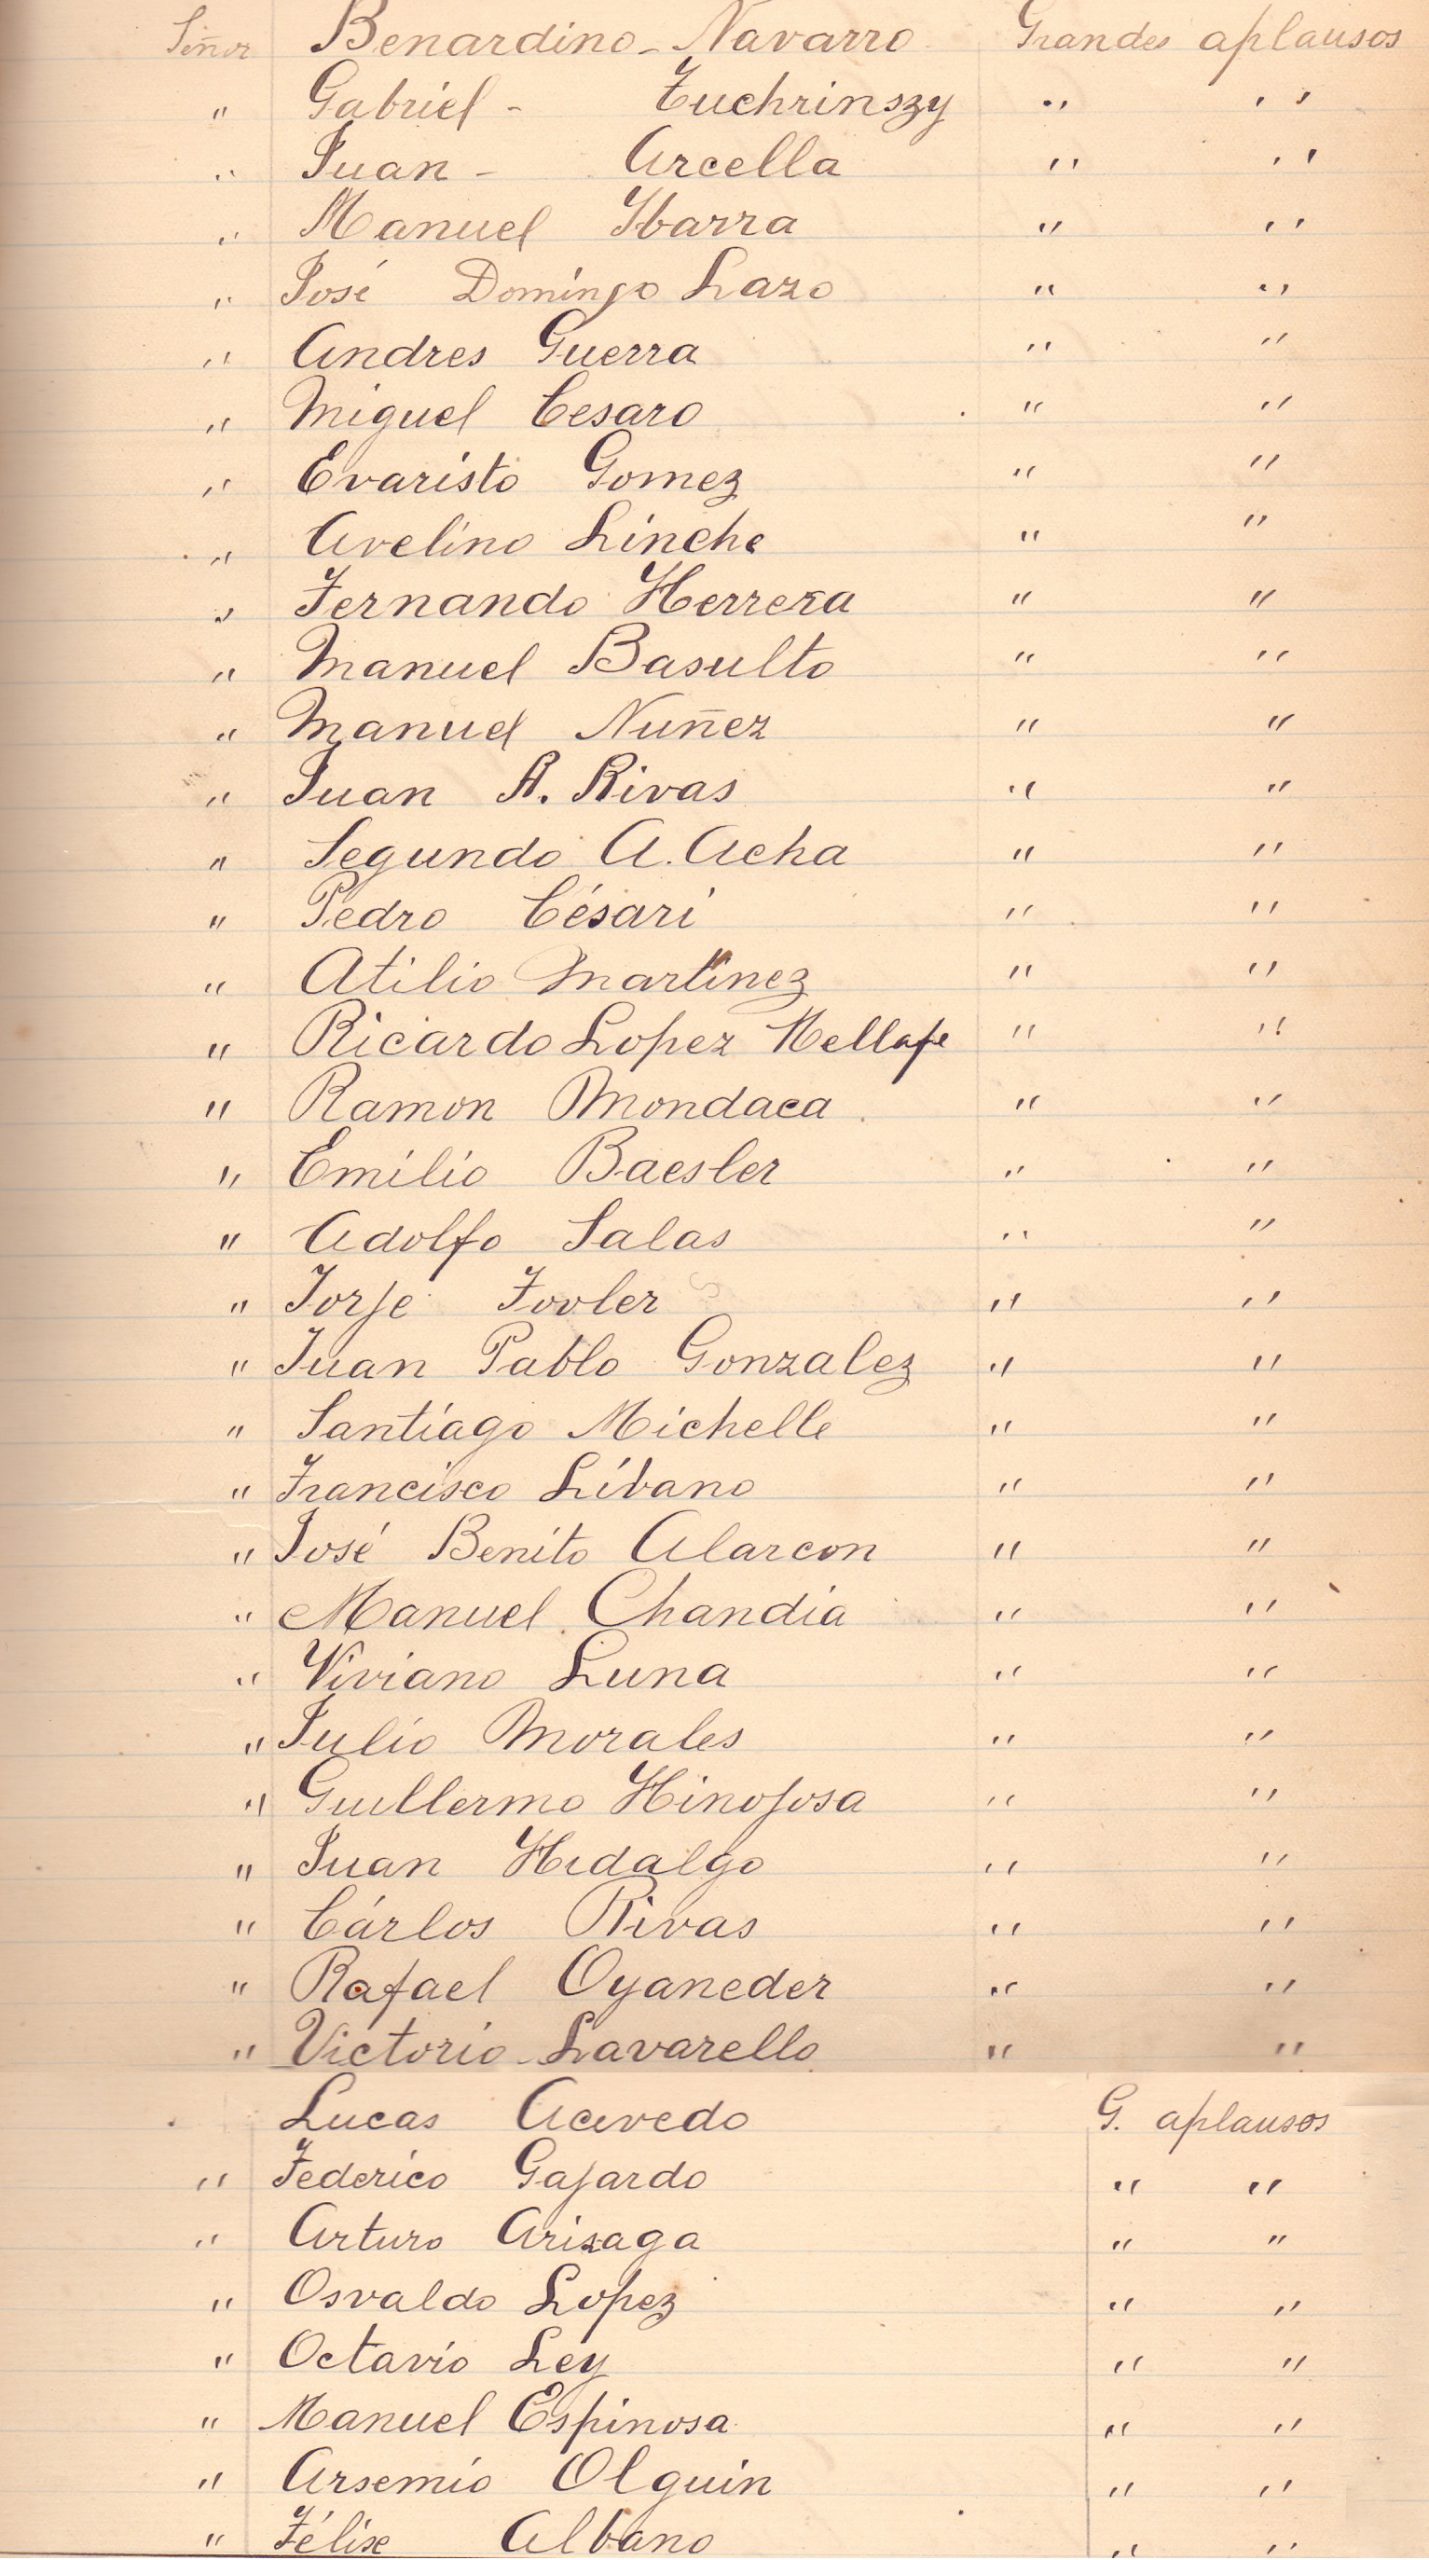 Señor Benardino - Navarro Grandes aplausos
" Gabriel - Tuchrinszy " "
" Juan - Arcella " "
" Manuel Ybarra " "
" José Domingo Lazo " "
" Andres Guerra " "
" Miguel Cesaro " "
" Evaristo Gomez " "
" Avelino Linche " "
" Fernando Herrera " "
" Manuel Basulto " "
" Manuel Nuñez " "
" Juan A. Rivas " "
" Segundo A. Acha " "
" Pedro Césari " "
" Atilio Martinez " "
" Ricardo Lopez Mellafe " "
" Ramon Mondaca " "
" Emilio Baesler " "
" Adolfo Salas " "
" Jorje Fovler " "
" Juan Pablo Gonzalez " "
" Santiago Michelle " "
" Francisco Líbano " "
" José Benito Alarcon " "
" Manuel Chandia " "
" Viviano Luna " "
" Julio Morales " "
" Guillermo Hinojosa " "
" Juan Hidalgo " "
" Cárlos Rivas " "
" Rafael Oyaneder " "
" Victorio Lavarello " "
Lucas Acevedo G. aplausos
" Federico Gajardo " "
" Arturo Arizaga " "
" Osvaldo Lopez " "
" Octavio Ley " "
" Manuel Espinosa " "
" Arsemio Olguin " "
" Félix Albano " "